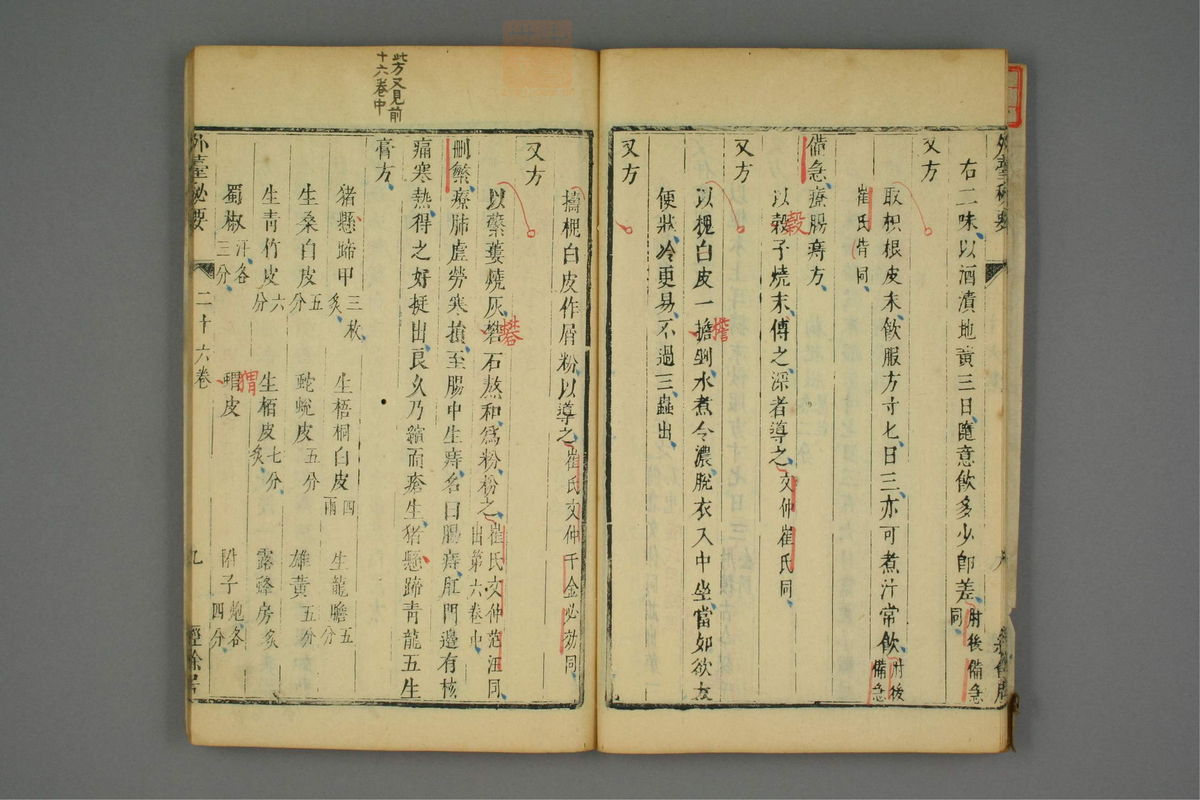 右二味以酒漬地黃三日隨意飲多少即差肘後備急同
又方
取枳根皮末飲服方寸匕日三亦可煮汁常飲肘後備急
崔氏皆同
備急療腸痔方
以榖子燒末傅之深者導之文仲崔氏同
穀
又方
以槐白皮一擔剉水煮令濃脫衣入中坐當如欲大
檐
便狀冷更易不過三蟲出
又方
擣槐白皮作屑粉以導之崔氏文仲千金必効同
又方
以蔞燒灰礬石熬和為粉粉之崔氏文仲范汪同出第六卷中
刪繁療肺虛勞寒損至腸中生痔名曰腸痔肛門邊有核
痛寒熱得之好挺出良久乃縮而瘡生猪懸蹄青龍五生
膏方
猪懸蹄甲三枚炙 生梧桐白皮四兩 生龍膽五分
生桑白皮五分 蛇蛻皮五分 雄黃五分
生青竹皮六分 生栢皮七分炙 露蜂房炙
蜀椒汗各三分 蝟皮 附子炮各四分
猬
外臺秘要 二十六卷 九 經餘居
此方又見前
十六卷中